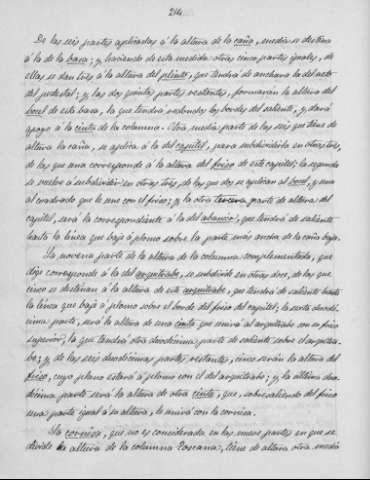 214.
De las seis partes aplicadas á la altura de la caña, media se destina
á la de la basa; y haciendo de esta medida otras cinco partes iguales, de
ellas se dan tres á la altura del plinto, que tendrá de anchura la del neto
del pedestal; y las dos quintas partes restantes, formarán la altura del
bocel de esta basa, la que tendrá redondos los bordes del saliente, y dará
apoyo á la cinta de la columna. Otra media parte de las seis que tiene de
altura la caña, se aplica á la del capitel, para subdividirla en otras tres,
de las que una corresponde á la altura del friso de este capitel; la segunda
se vuelve á subdividir en otras tres, de las que dos se aplican al bocel, y una
al cuadrado que le une con el friso; y la otra tercera parte de altura del
capitel, será la correspondiente á la del abanico; que tendrá de saliente
hasta la línea que baja á plomo sobre la parte más ancha de la caña baja.
La novena parte de la altura de la columna complementada, que
dije corresponde á la del arquitrabe, se subdivide en otras doce, de las que
cinco se destinan á la altura de este arquitrabe, que tendrá de saliente hasta
la línea que baje á plomo sobre el borde del friso del capitel; la sexta duodé-
cima parte, será la altura de una cinta que unirá al arquitrabe con su friso
superior, la que tendrá otra duodécima parte de saliente sobre el arquitra-
be; y de las seis duodécimas partes restantes, cinco serán la altura del
friso, cuyo plano estará á plomo con el del arquitrabe; y la última duo-
décima parte será la altura de otra cinta, que sobresaliendo del friso
una parte igual á su altura, le unirá con la cornisa.
La cornisa, que no es considerada en las nueve partes en que se
divide la altura de la columna Toscana, tiene de altura otra media